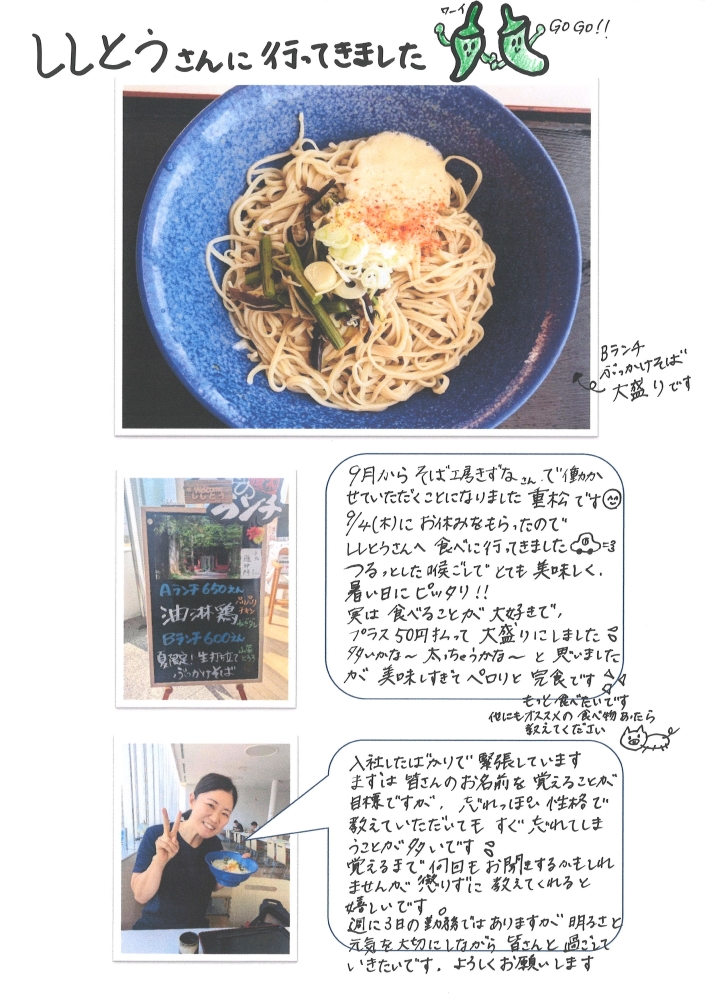 ししとうさんに行ってきました
ワーイ
GOGO!!
Bランチ
ぶっかけそば
大盛りです
9月から そば工房きずなさんで働か
せていただくことになりました 重松です
9/4(木)に お休みをもらったので
ししとうさんへ 食べに行ってきました
つるっとした喉ごしで とても 美味しく、
暑い日に ピッタリ!!
実は 食べることが 大好きで、
プラス50円払って 大盛りにしました
多いかな〜 太っちゃうかな〜 と 思いました
が 美味しすぎて ペロリと 完食です
もっと食べたいです
他にもオススメの食べ物あったら
教えてください
Welcome
ししとう
ランチ
Aランチ 650えん
油淋鶏
Bランチ 600えん
夏限定!生打ち立て
ぶっかけそば
入社したばかりで 緊張しています
まずは 皆さんのお名前を 覚えることが
目標ですが、忘れっぽい 性格で
教えていただいても すぐ 忘れてしま
うことが多いです
覚えるまで 何回も お聞きするかもしれ
ませんが 懲りずに 教えてくれると
嬉しいです。
週に3日の勤務ではありますが 明るさと
元気を大切にしながら 皆さんと 過ごして
いきたいです。よろしくお願いします